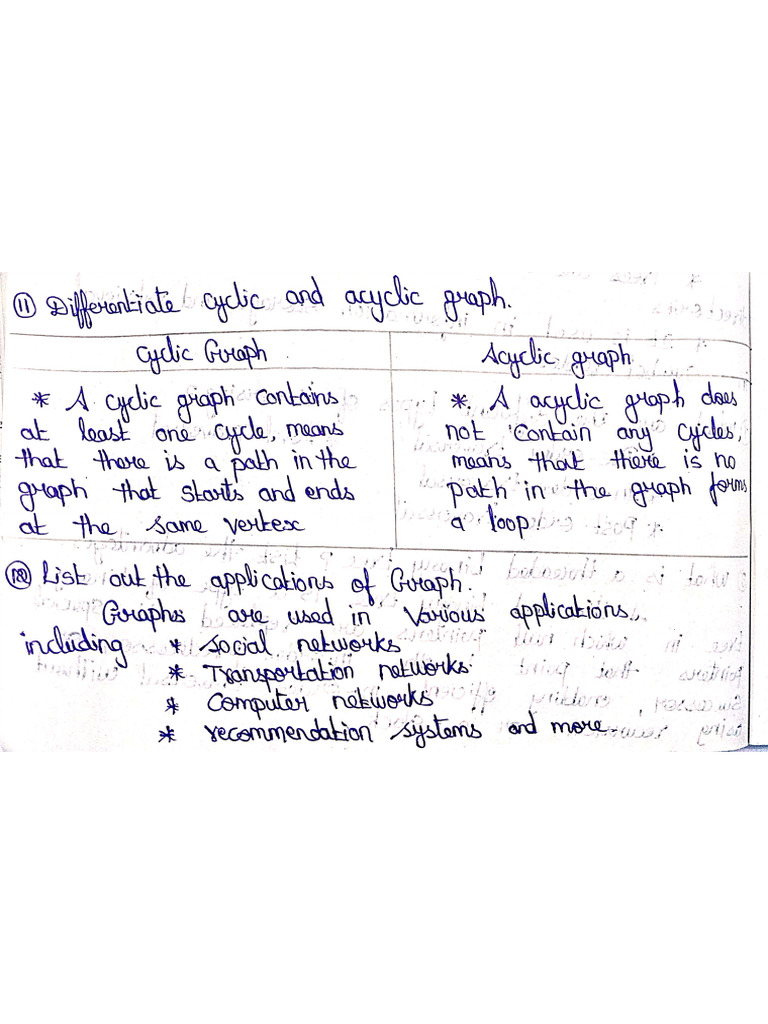 11 Differentiate cyclic and acyclic graph.
Cyclic Graph
Acyclic graph
* A cyclic graph contains
at least one cycle, means
that there is a path in the
graph that starts and ends
at the same vertex
* A acyclic graph does
not contain any cycles,
means that there is no
path in the graph forms
a loop
12 List out the applications of Graph.
Graphs are used in various applications,
including * social networks
* Transportation networks
* Computer networks
* recommendation systems and more.